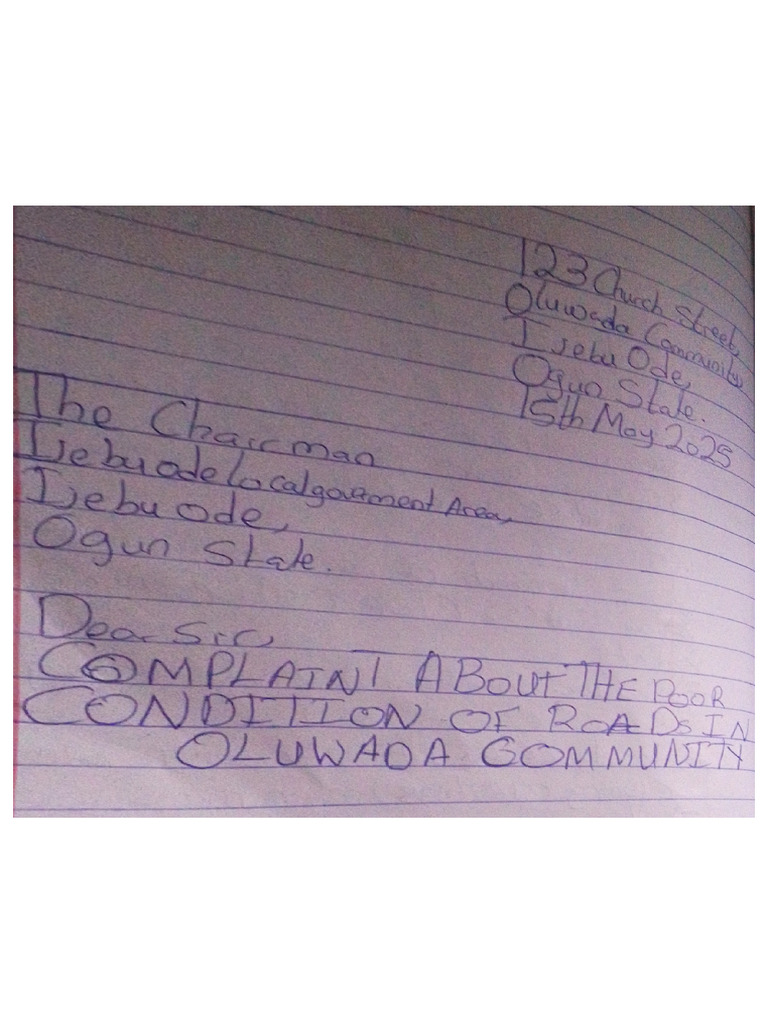 123 Church Street,
Oluwada Community,
Ijebu Ode,
Ogun State.
15th May 2025
The Chairman
Ijebu ode local government Area,
Ijebu Ode,
Ogun State.
Dear Sir,
COMPLAINT ABOUT THE POOR
CONDITION OF ROADS IN
OLUWADA COMMUNITY